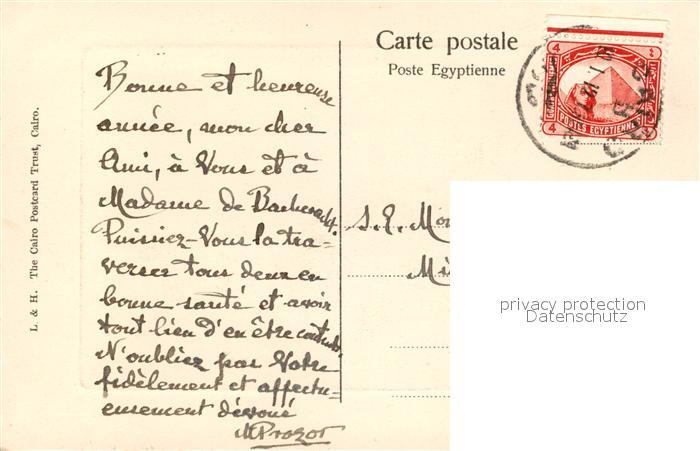 Carte postale
Poste Egyptienne
4
4
POSTES EGYPTIENNES
4
4
L. & H. The Cairo Postcard Trust, Cairo.
Bonne et heureuse
année, mon cher
Ami, à Vous et à
Madame de
Puissiez-Vous la tra=
verser tous deux en
bonne santé et avoir
tout lieu d'en être contents.
N'oubliez pas Votre
fidèlement et affectu=
eusement dévoué
MProzor
S. E. Mon
Mi
privacy protection
Datenschutz